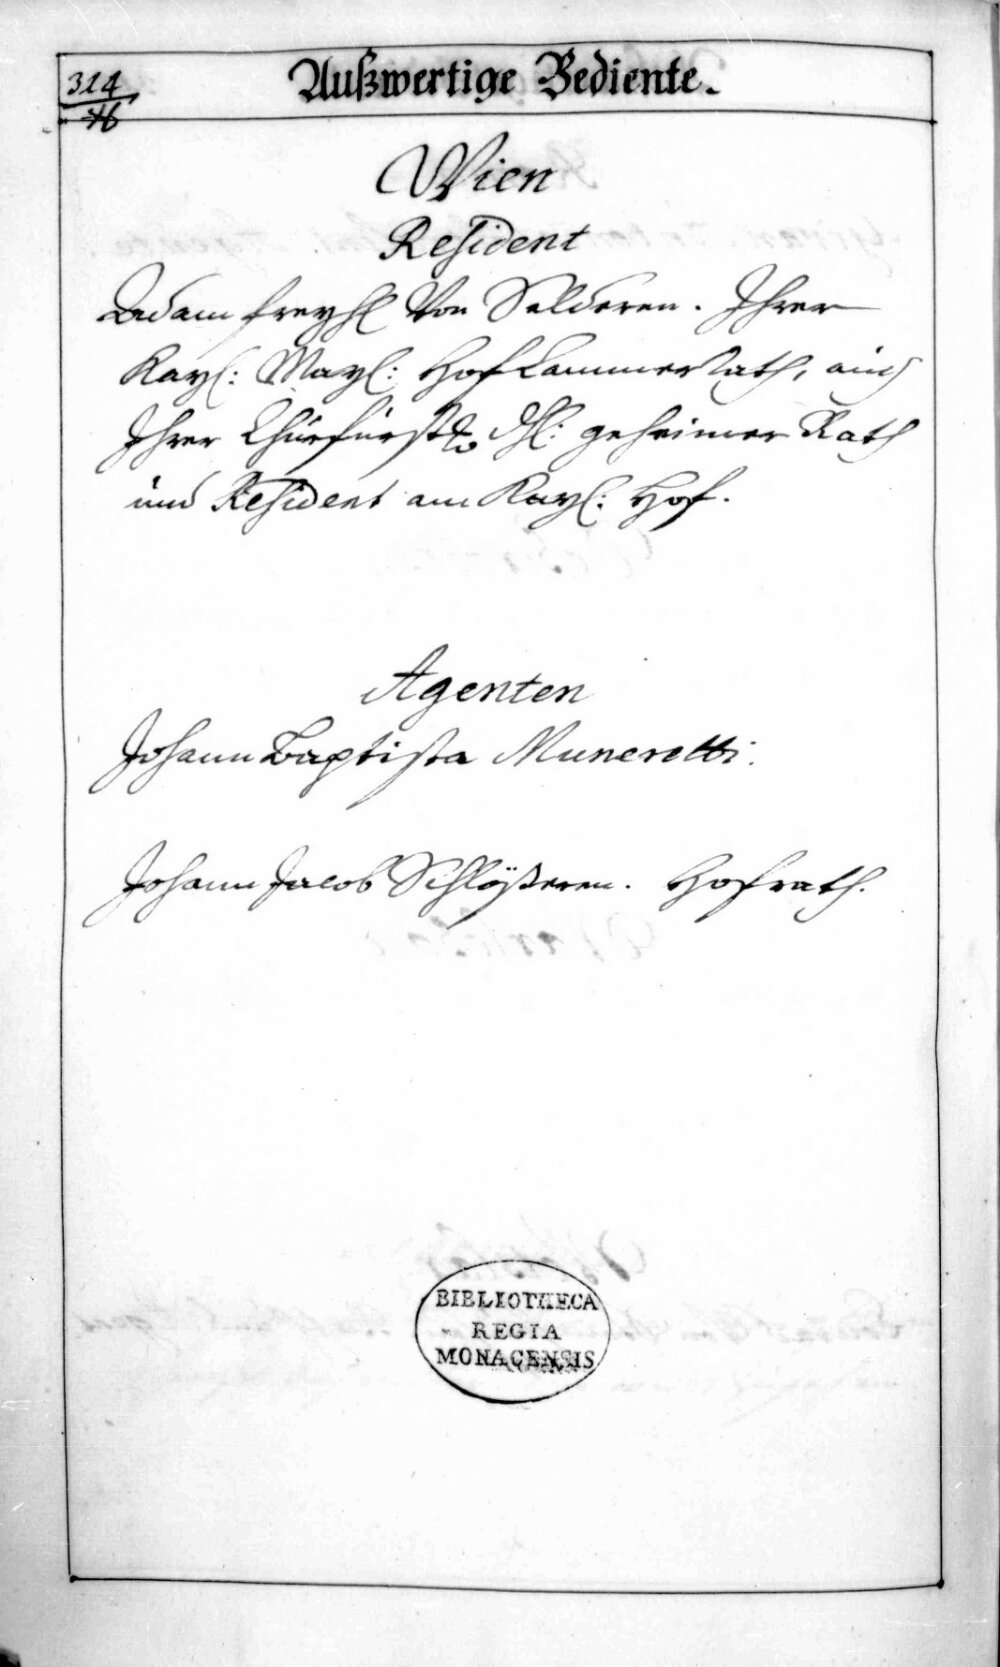 314
Außwertige Bediente.
Wien
Resident
Adam freyh: Von Selderen. Ihrer
Kayl: Mayl: Hof Cammer Rath, auch
Ihrer Churfürstl. dhl: geheimer Rath
und Resident am Kayl: Hof.
Agenten
Johann Baptista Muneretti.
Johann Jacob Schlößeren. Hofrath.
BIBLIOTHECA
REGIA
MONACENSIS